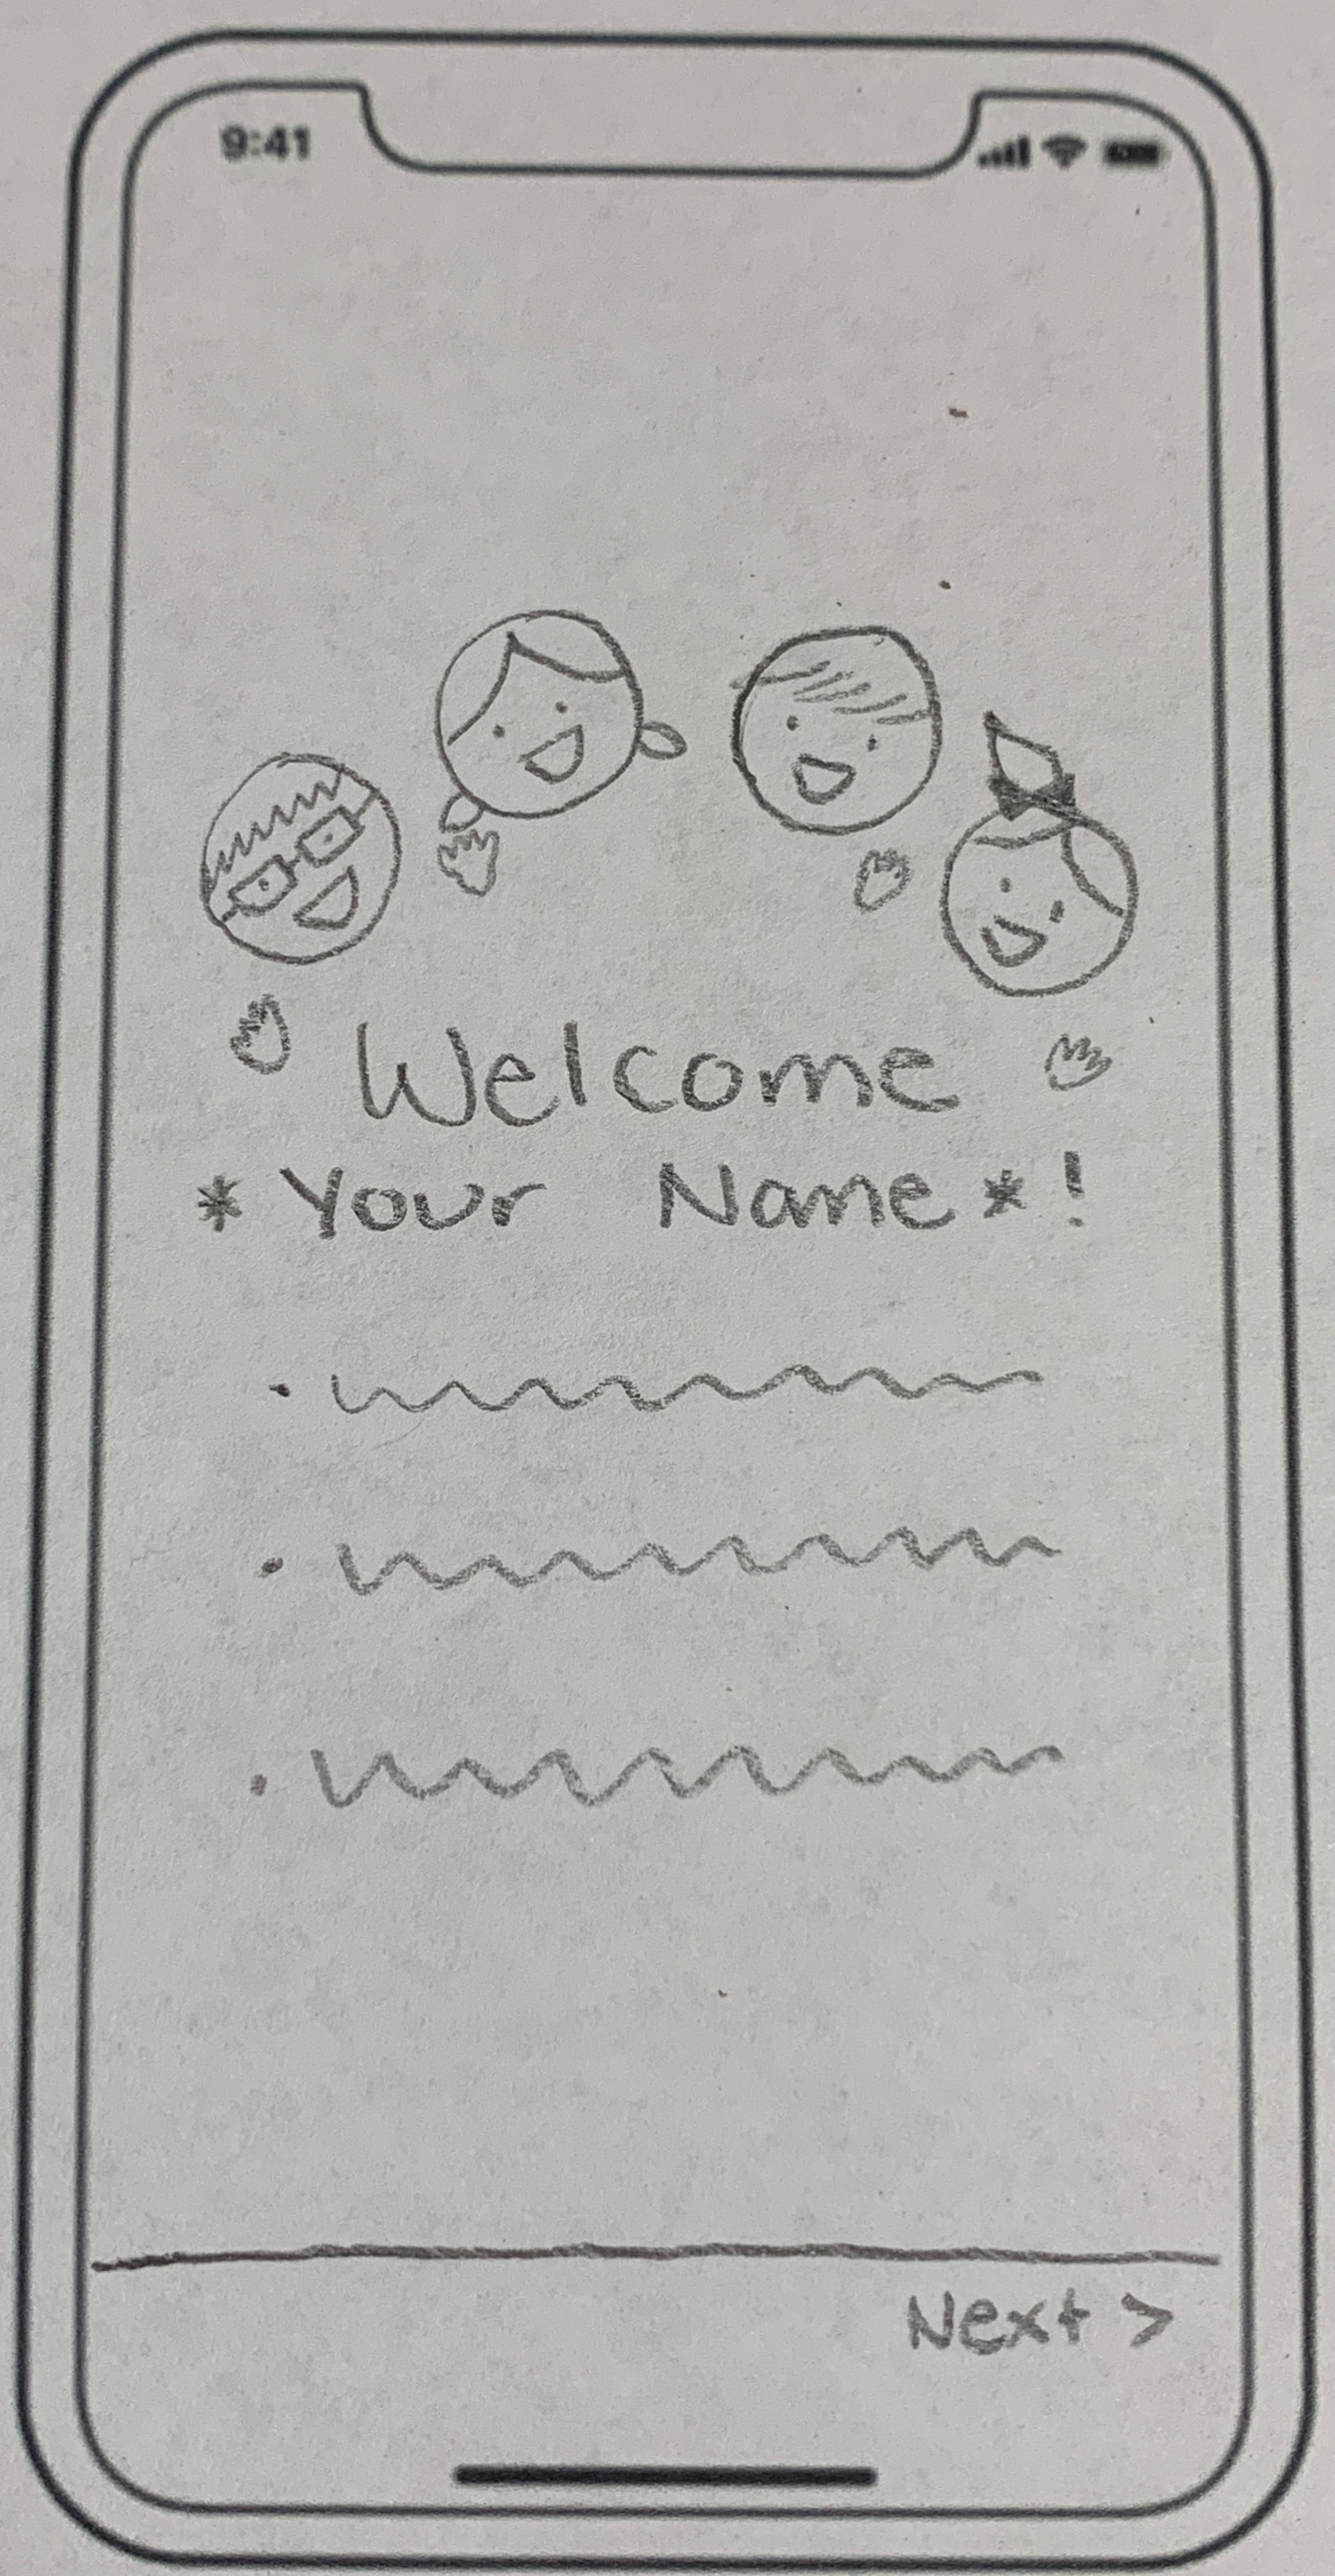 9:41
Welcome
* Your Name * !
Next >